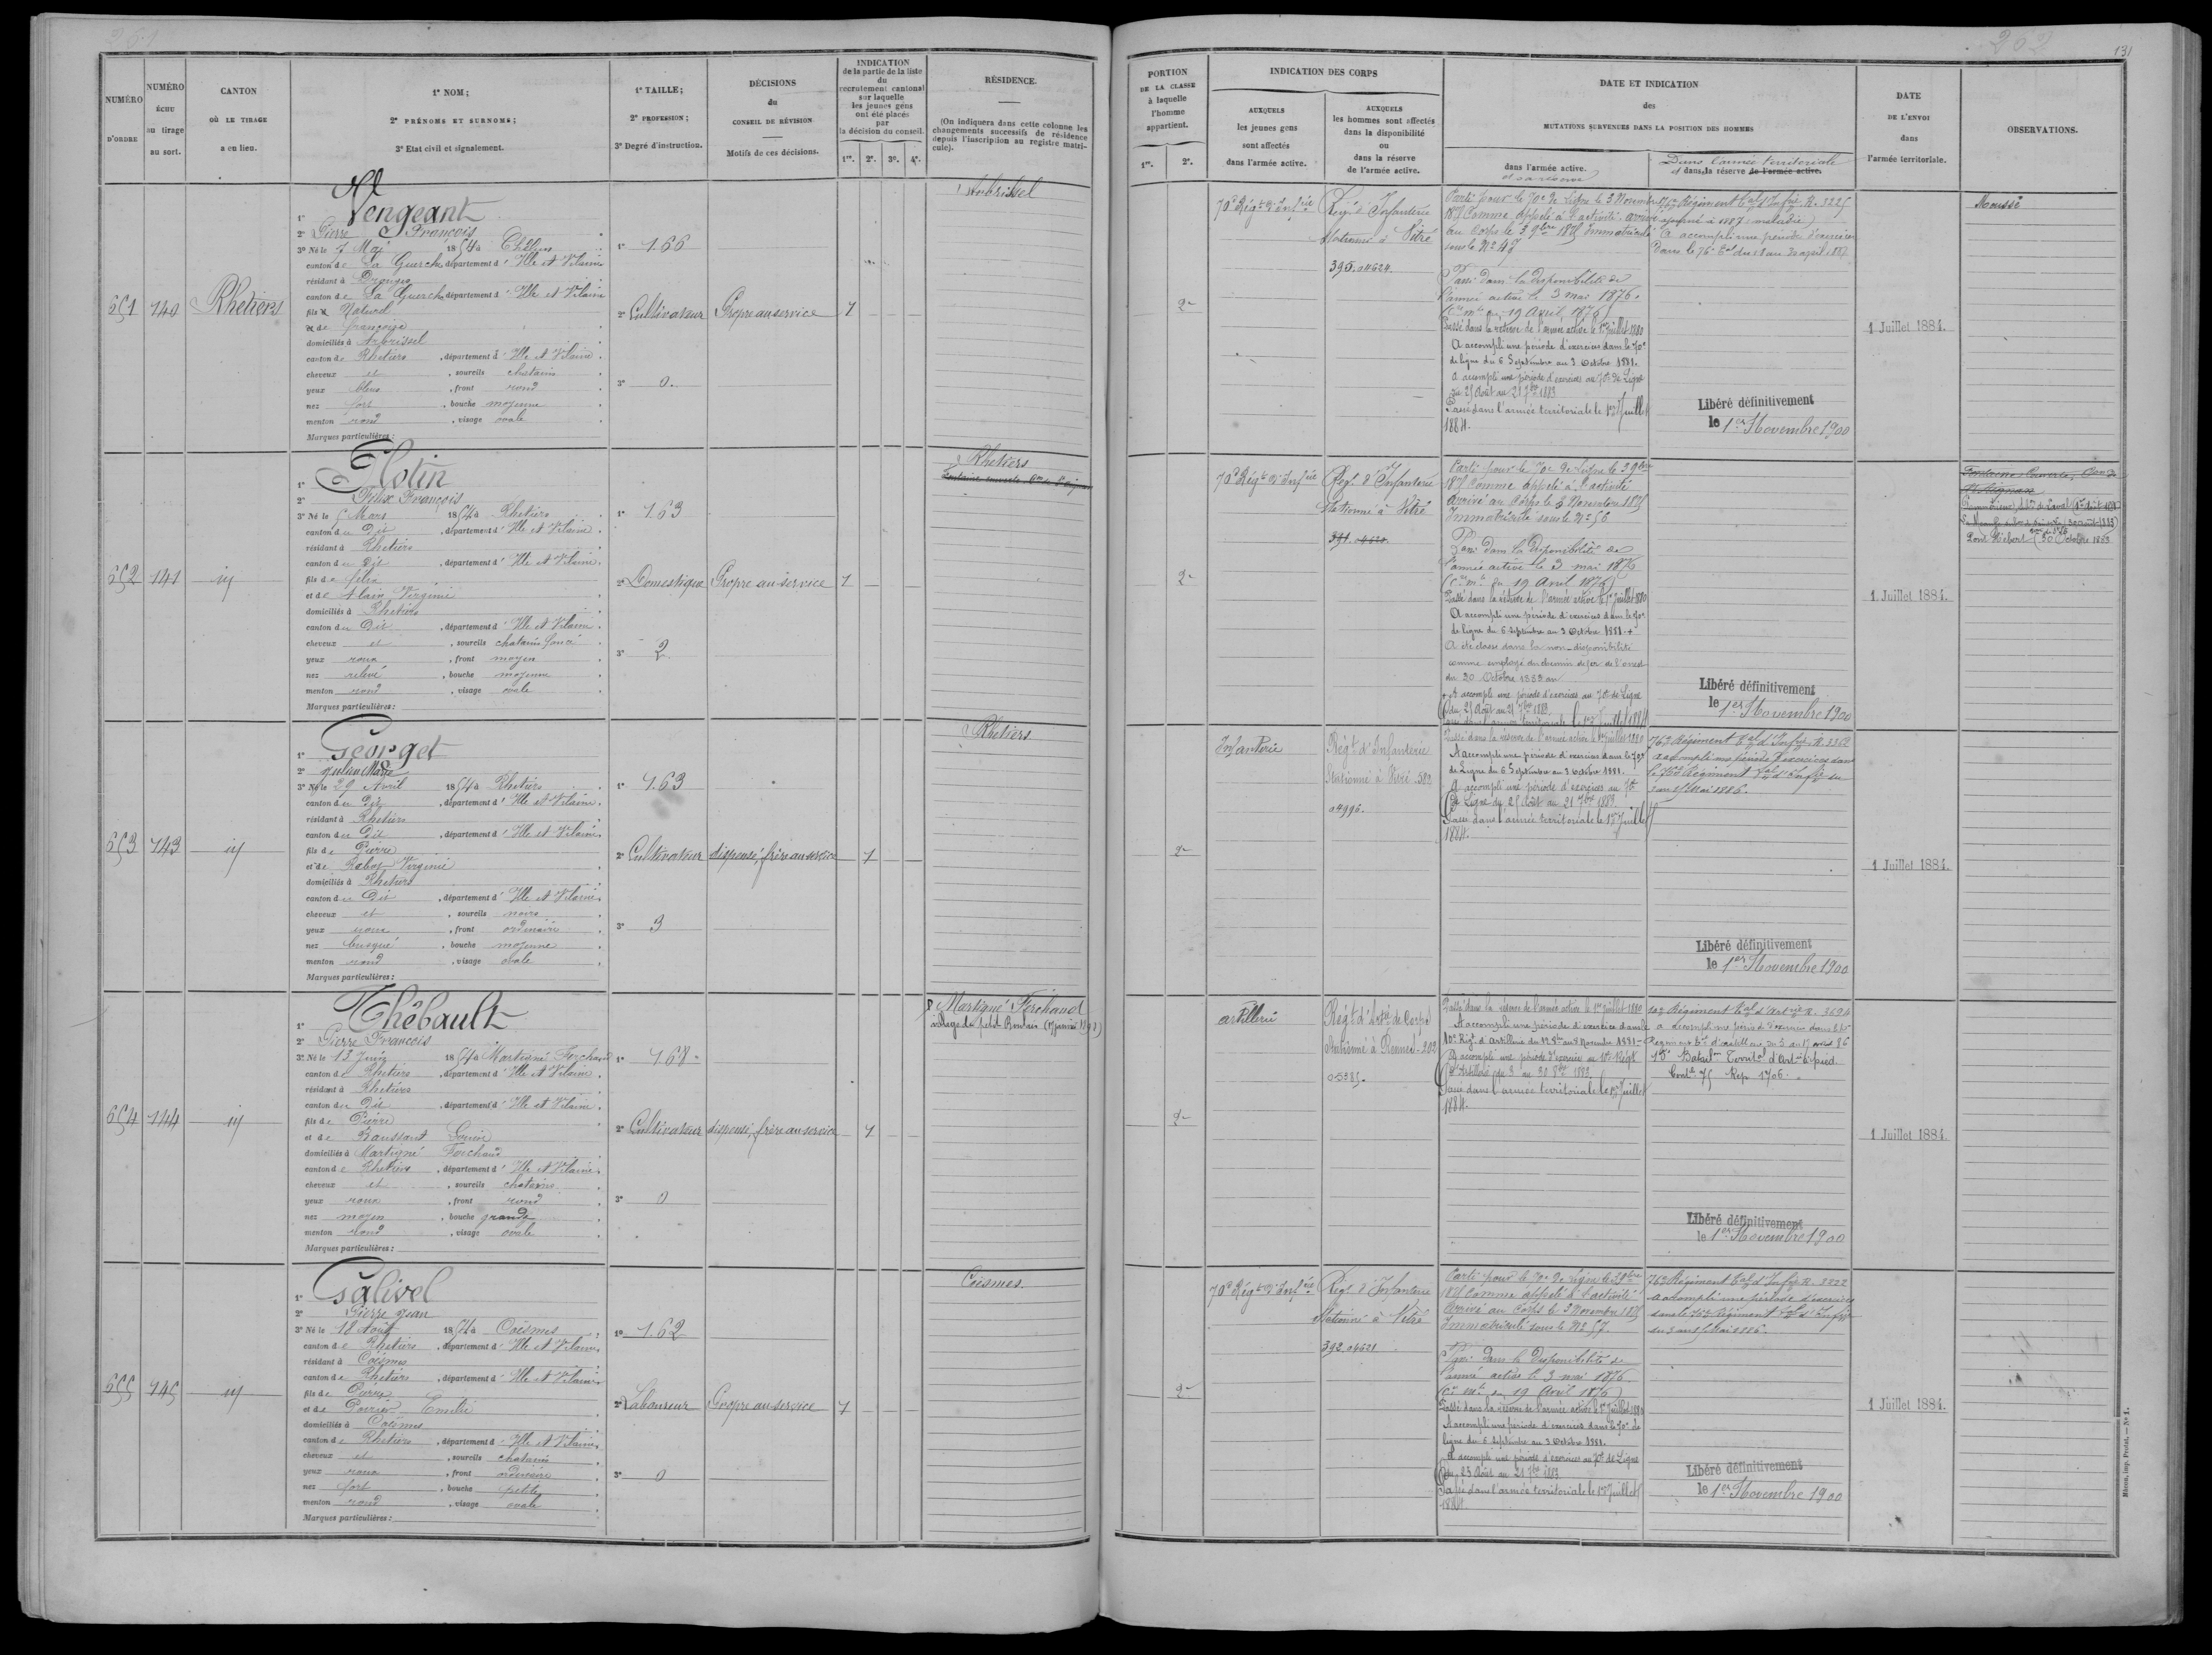 202
131
NUMÉRO D'ORDRE
NUMÉRO ÉCHU au tirage au sort.
CANTON OÙ LE TIRAGE a eu lieu.
1° NOM;
2° PRÉNOMS ET SURNOMS;
3° Etat civil et signalement.
1° TAILLE;
2° PROFESSION;
3° Degré d'instruction.
DÉCISIONS du CONSEIL DE RÉVISION
Motifs de ces décisions.
INDICATION de la partie de la liste du recrutement cantonal sur laquelle les jeunes gens ont été placés par la décision du conseil.
1re. 2e. 3e. 4e.
RÉSIDENCE.
(On indiquera dans cette colonne les changements successifs de résidence depuis l'inscription au registre matricule).
PORTION DE LA CLASSE à laquelle l'homme appartient.
1re. 2e.
INDICATION DES CORPS
AUXQUELS les jeunes gens sont affectés dans l'armée active.
AUXQUELS les hommes sont affectés dans la disponibilité ou dans la réserve de l'armée active.
DATE ET INDICATION des MUTATIONS SURVENUES DANS LA POSITION DES HOMMES
dans l'armée active.
et sa réserve
Dans l'armée territoriale
et dans la réserve de l'armée active.
DATE DE L'ENVOI dans l'armée territoriale.
OBSERVATIONS.
651
140
Rhetiers
1° Vengeant
2° Pierre François
3° Né le 7 Mai 1854 à
canton de La Guerche département d'Ille et Vilaine
résidant à Drouges
canton de La Guerche département d'Ille et Vilaine
fils Naturel
de françoise
domiciliés à Arbrissel
canton de Rhetiers, département d'Ille et Vilaine
cheveux et, sourcils chatains
yeux bleus, front rond
nez fort, bouche moyenne
menton rond, visage ovale
Marques particulières:
1° 1.66
2° Cultivateur
3° 0.
Propre au service
1
Arbrissel
2e
70e Régt d'Infrie
Regt d'Infanterie
stationné à Vitré
395. 04624.
Parti pour le 70e de Ligne le 3 Novembre
1875 Comme appelé à l'activité. arrivé
au Corps le 3 9bre 1875 Immatriculé
sous le N° 47
Passé dans la disponibilité de
l'armée active le 3 mai 1876.
19 Avril 1876)
Passé dans la réserve de l'armée active le 1er juillet 1880
A accompli une période d'exercices dans le 70e
de ligne du 6 Septembre au 3 Octobre 1881.
A accompli une période d'exercices au 70e de Ligne
du 25 Août au 21 7bre 1883
Passé dans l'armée territoriale le 1er Juillet
1884.
76e Régiment tal d'Infie R. 3225
ajourné à 1887 maladie)
A accompli une période d'exercices
Libéré définitivement
le 1er Novembre 1900
1 Juillet 1884.
Moussé
652
141
id
1° Hotin
2° Félix François
3° Né le 5 Mars 1854 à Rhetiers
canton du Dit, département d'Ille et Vilaine
résidant à Rhetiers
canton du Dit, département d'Ille et Vilaine
fils de félix
et de Alain Virginie
domiciliés à Rhetiers
canton du Dit, département d'Ille et Vilaine
cheveux et, sourcils chatains foncé
yeux roux, front moyen
nez relevé, bouche moyenne
menton rond, visage ovale
Marques particulières:
1° 1.63
2° Domestique
3° 2
Propre au service
1
Rhetiers
2e
70e Régt d'Infrie
Regt d'Infanterie
Stationné à Vitré
391. 4620.
Parti pour le 70e de Ligne le 3 9bre
1875 Comme appelé à l'activité
Arrivé au Corps le 3 Novembre 1875
Immatriculé sous le N° 56
Passé dans la Disponibilité de
l'armée active le 3 mai 1876
(Cre mlle du 19 Avril 1876)
Passé dans la réserve de l'armée active le 1er juillet 1880
A accompli une période d'exercices dans le 70e
de ligne du 6 Septembre au 3 Octobre 1881. +
A été classé dans la non-disponibilité
comme employé du chemin de fer de l'ouest
du 20 Octobre 1882 au
+ A accompli une période d'exercices au 70e de Ligne
du 25 Août au 21 7bre 1883
Passé dans l'armée territoriale le 1er Juillet 1884
Libéré définitivement
le 1er Novembre 1900
1 Juillet 1884.
Pont Hébert (30 Octobre 1883
653
143
id
1° Georget
2° Julien Marie
3° Né le 29 Avril 1854 à Rhetiers
canton du Dit, département d'Ille et Vilaine
résidant à Rhetiers
canton du Dit, département d'Ille et Vilaine
fils de Pierre
et de Virginie
domiciliés à Rhetiers
canton du Dit, département d'Ille et Vilaine
cheveux et, sourcils noirs
yeux roux, front ordinaire
nez busqué, bouche moyenne
menton rond, visage ovale
Marques particulières:
1° 1.63
2° Cultivateur
3° 3
dispensé, frère au service
1
Rhetiers
2e
Infanterie
Regt d'Infanterie
Stationné à Vitré 589
04996.
Passé dans la réserve de l'armée active le 1er juillet 1880
A accompli une période d'exercices dans le 70e
de Ligne du 6 Septembre au 3 Octobre 1881.
A accompli une période d'exercices au 70e
de Ligne du 25 Août au 21 7bre 1883.
Passé dans l'armée territoriale le 1er Juillet
1884.
76e Régiment tal d'Infie R. 3362
a accompli une période d'exercices dans
le 76e Régiment tal d'Infie du
3 au 15 Mai 1886.
Libéré définitivement
le 1er Novembre 1900
1 Juillet 1884.
654
144
id
1° Thébault
2° Pierre François
3° Né le 13 1854 à Martigné Ferchaud
canton de Rhetiers, département d'Ille et Vilaine
résidant à Rhetiers
canton du Dit, département d'Ille et Vilaine
fils de Pierre
et de
domiciliés à Martigné Ferchaud
canton de Rhetiers, département d'Ille et Vilaine
cheveux et, sourcils chatains
yeux roux, front rond
nez moyen, bouche grande
menton rond, visage ovale
Marques particulières:
1° 1.68
2° Cultivateur
3° 0
dispensé, frère au service
1
Martigné Ferchaud
village du petit
2e
artillerie
Regt d'Artie de Corps
Stationné à Rennes-202
05385.
Passé dans la réserve de l'armée active le 1er juillet 1880
A accompli une période d'exercices dans le
10e Régt d'Artillerie du 12 8bre au 8 Novembre 1881-
A accompli une période d'exercices au 10e Régt
d'Artillerie du 3 au 30 8bre 1883.
Passé dans l'armée territoriale le 1er Juillet
1884.
10e Régiment tal d'Artrie R. 3694
a accompli une période d'exercices dans le 10e
Régiment tal d'artillerie du 3 au 17 86
Bataillon Territal d'Artie à pied
75 Rep 1706.
Libéré définitivement
le 1er Novembre 1900
1 Juillet 1884.
655
145
id
1° Galivel
2° Pierre Jean
3° Né le 18 Août 1854 à Coësmes
canton de Rhetiers, département d'Ille et Vilaine
résidant à Coësmes
canton de Rhetiers, département d'Ille et Vilaine
fils de Pierre
et de Poirier Emélie
domiciliés à Coësmes
canton de Rhetiers, département d'Ille et Vilaine
cheveux et, sourcils chatains
yeux roux, front ordinaire
nez fort, bouche petite
menton rond, visage ovale
Marques particulières:
1° 1.62
2° Laboureur
3° 0
Propre au service
1
Coësmes
2e
70e Régt d'Infrie
Regt d'Infanterie
Stationné à Vitré
392. 04621
Parti pour le 70e de Ligne le 3 9bre
1875 Comme appelé à l'activité
Arrivé au Corps le 3 Novembre 1875
Immatriculé sous le N° 57.
Passé dans la Disponibilité de
l'armée active le 3 mai 1876.
(Cre mlle du 19 Avril 1876)
Passé dans la réserve de l'armée active le 1er Juillet 1880
A accompli une période d'exercices dans le 70e de
ligne du 6 Septembre au 3 Octobre 1881.
A accompli une période d'exercices au 70e de Ligne
du 25 Août au 21 7bre 1883
Passé dans l'armée territoriale le 1er Juillet
1884.
76e Régiment tal d'Infie R. 3222
a accompli une période d'exercices
dans le 76e Régiment tal d'Infie
du 3 au 15 Mai 1886.
Libéré définitivement
le 1er Novembre 1900
1 Juillet 1884.
Mâcon, imp. Protat. — N° 1.